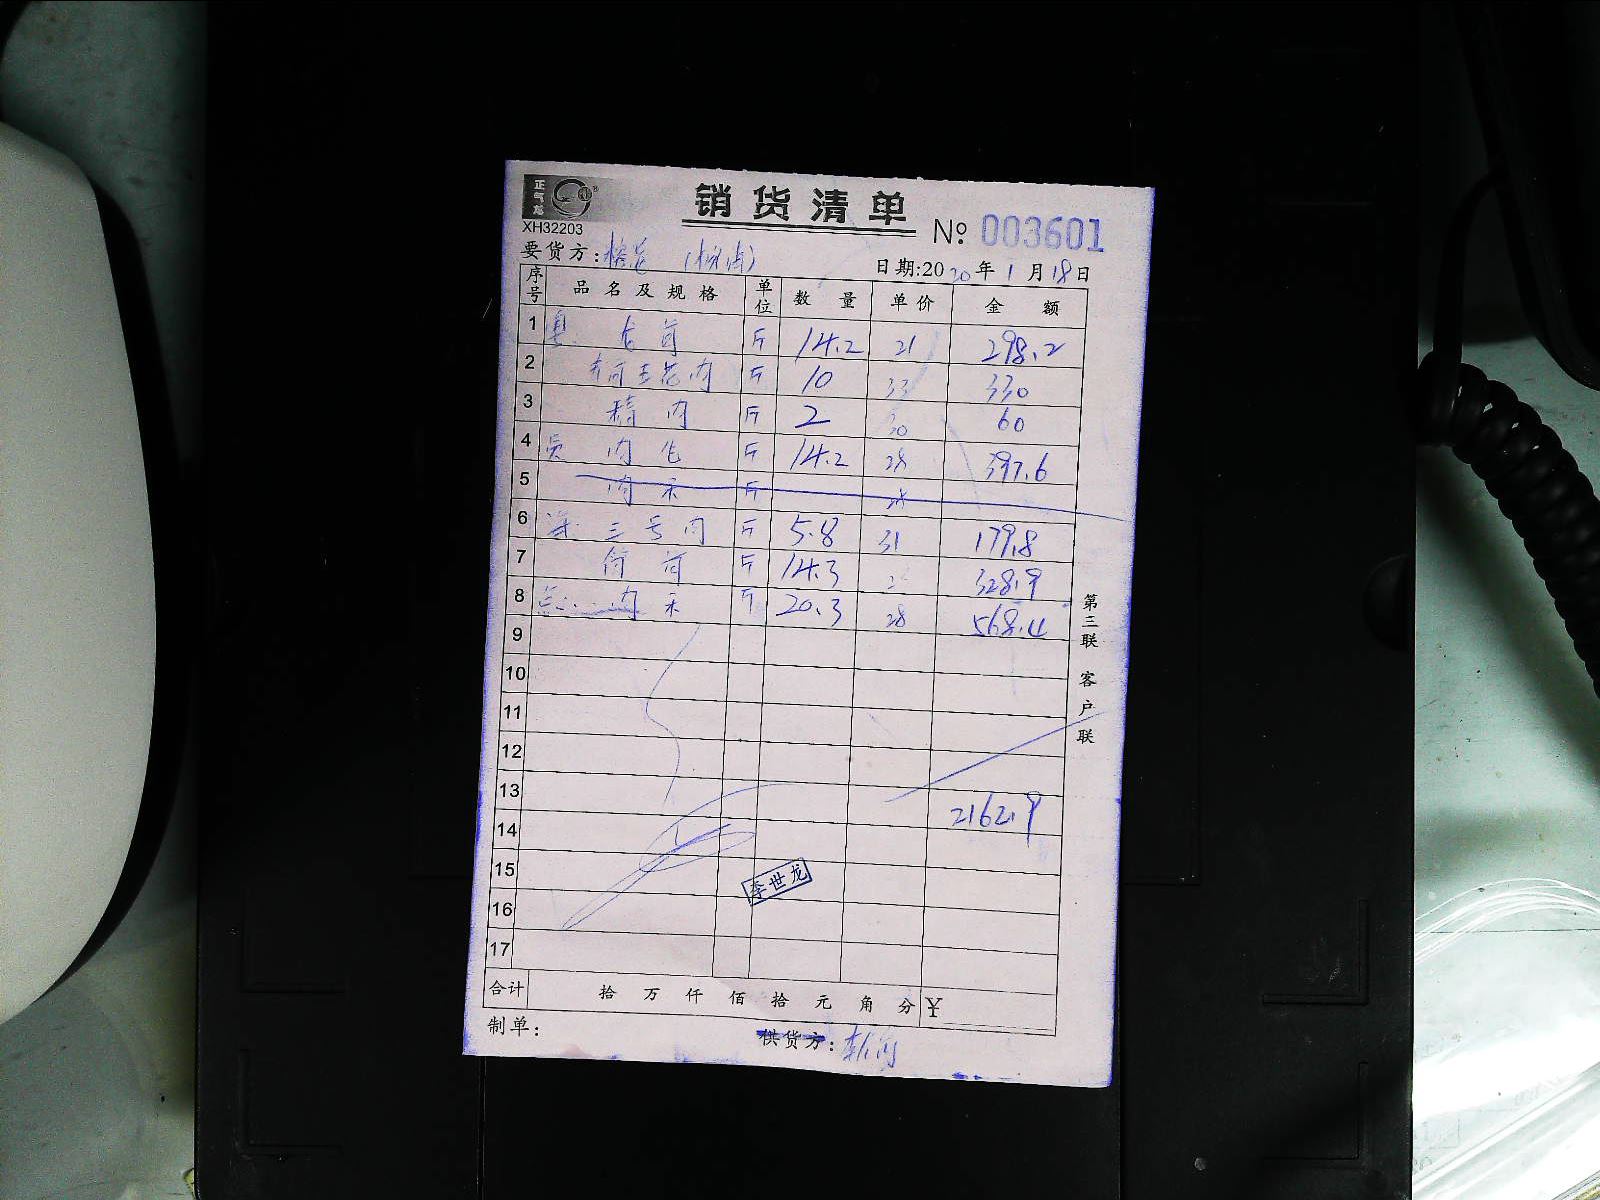 正气龙
销货清单
XH32203
№ 003601
要货方:
日期:2020年1月18日
序号 品名及规格 单位 数量 单价 金额
1 斤 14.2 21 298.2
2 肉 斤 10 33 330
3 精肉 斤 2 30 60
4 肉 斤 14.2 28 397.6
5 肉 斤 28
6 三号肉 斤 5.8 31 179.8
7 斤 14.3 328.9
8 肉 斤 20.3 28 568.4
9
10
11
12
13 2162.9
14
15 李世龙
16
17
合计 拾万仟佰拾元角分 ¥
制单: 供货方:
第三联 客户联